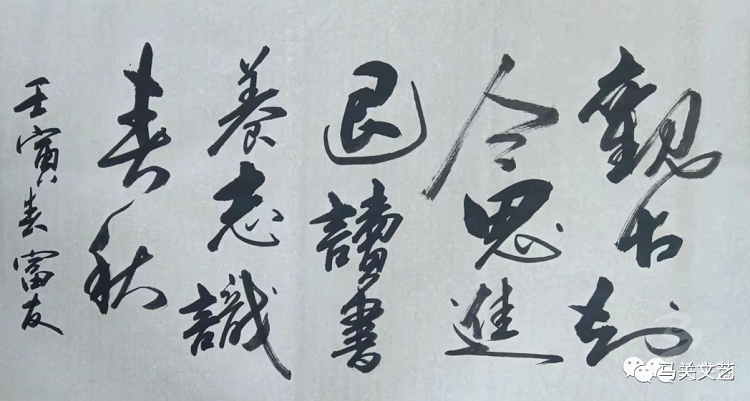 觀古知
今思進
退讀書
養志識
春秋
壬寅春富友
马关文艺